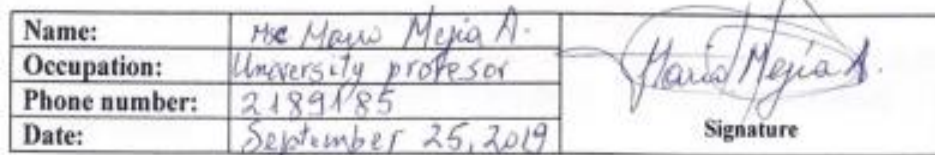 Name: Msc Mario Mejia A.
Occupation: University profesor
Phone number: 2189185
Date: September 25, 2019
Mario Mejia A.
Signature